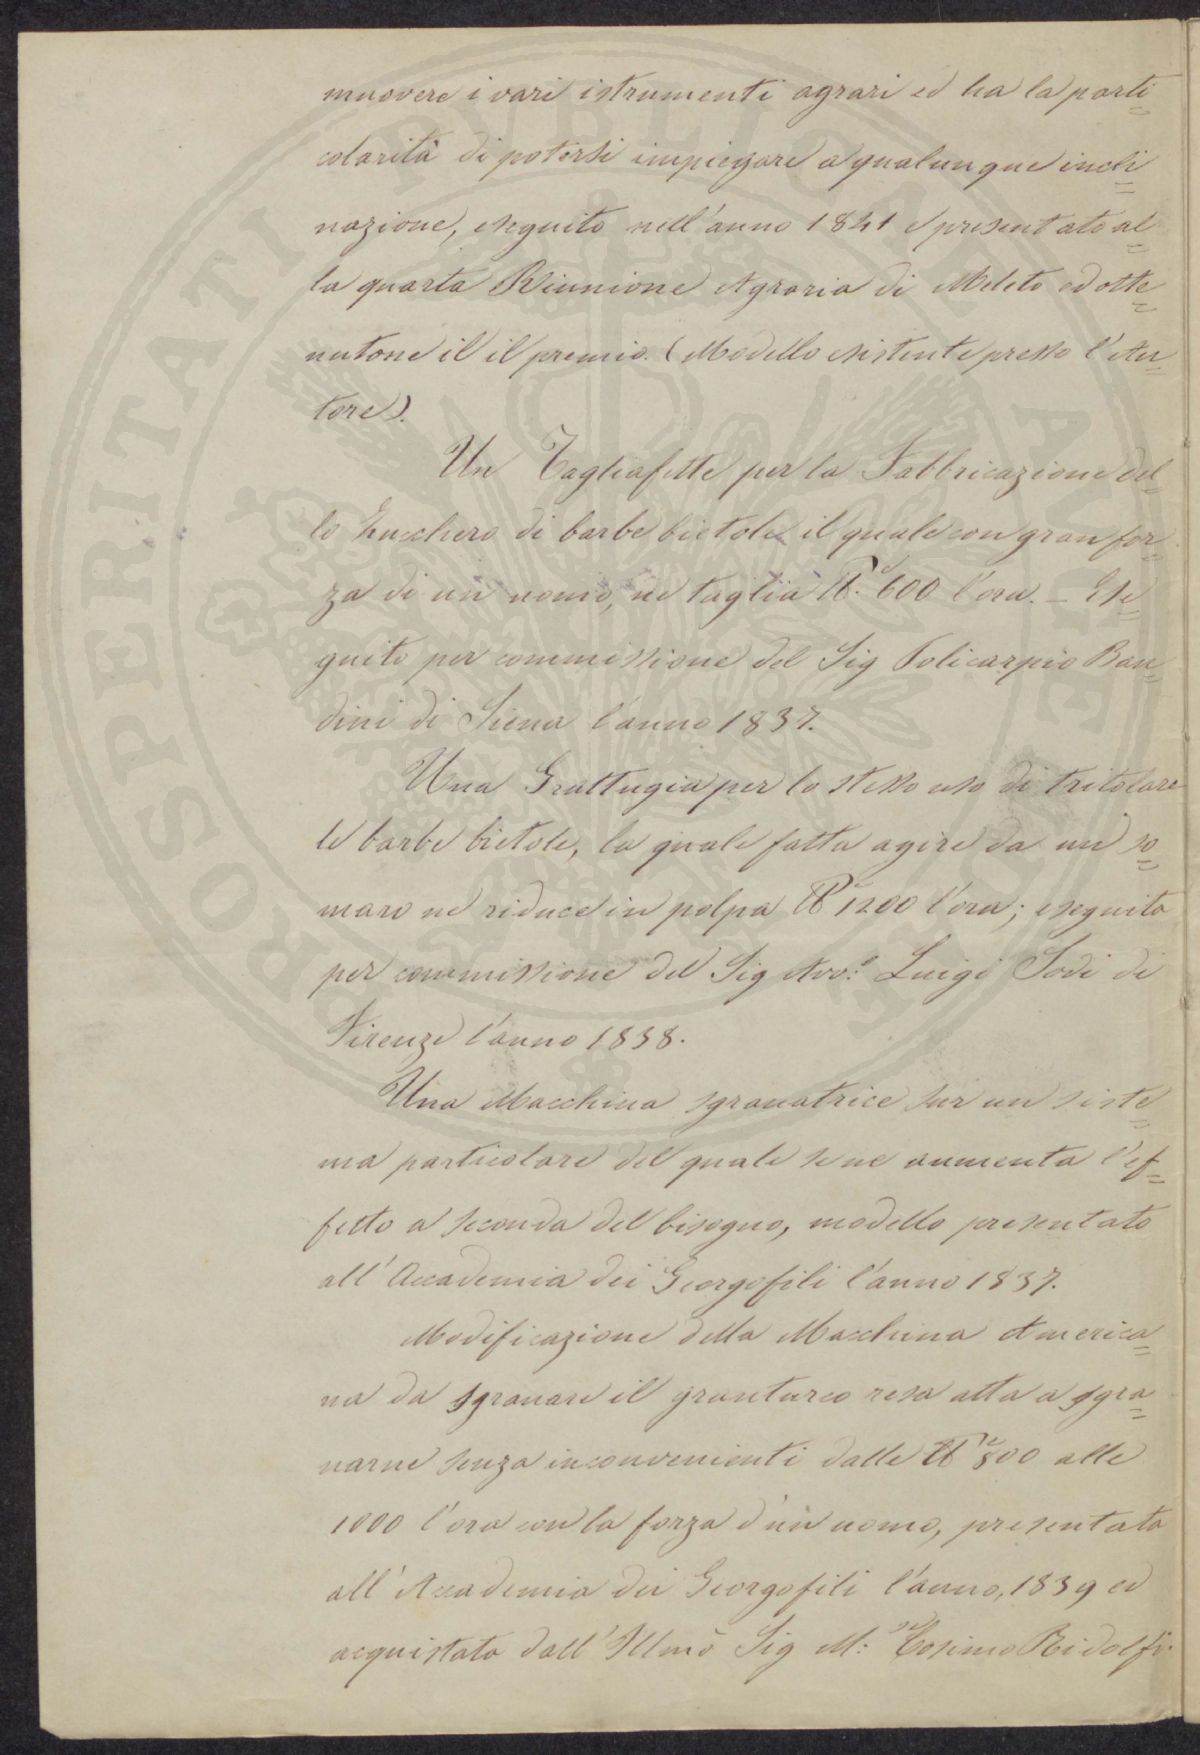 muovere i vari istrumenti agrari ed ha la parti=
colarità di potersi impiegare a qualunque incli=
nazione, eseguito nell'anno 1841 e presentato al=
la quarta Riunione Agraria di Meleto ed otte=
nutone il il premio. (Modello esistente presso l'Au=
tore).
Un Tagliafette per la Fabbricazione del=
lo Zucchero di barbe bietole il quale con gran for=
za di un uomo, ne taglia ℔.e 600 l'ora. _ Ese=
guito per commissione del Sig Policarpio Ban=
dini di Siena l'anno 1837.
Una Grattugia per lo stesso uso di tritolare
le barbe bietole, la quale fatta agire da un so=
maro ne riduce in polpa ℔e 1200 l'ora; eseguita
per commissione del Sig Avv:o Luigi Sodi di
Firenze l'anno 1838.
Una Macchina sgranatrice sur un siste=
ma particolare del quale se ne aumenta l'ef=
fetto a seconda del bisogno, modello presentato
all'Accademia dei Georgofili l'anno 1837.
Modificazione della Macchina America=
na da sgranare il granturco resa atta a sgra=
narne senza inconvenienti dalle ℔e 800 alle
1000 l'ora con la forza d'un uomo, presentata
all'Accademia dei Georgofili l'anno, 1839 ed
acquistata dall'Illmo Sig M:se Cosimo Ridolfi.
PROSPERITATI PVBLICAE AVGENDAE